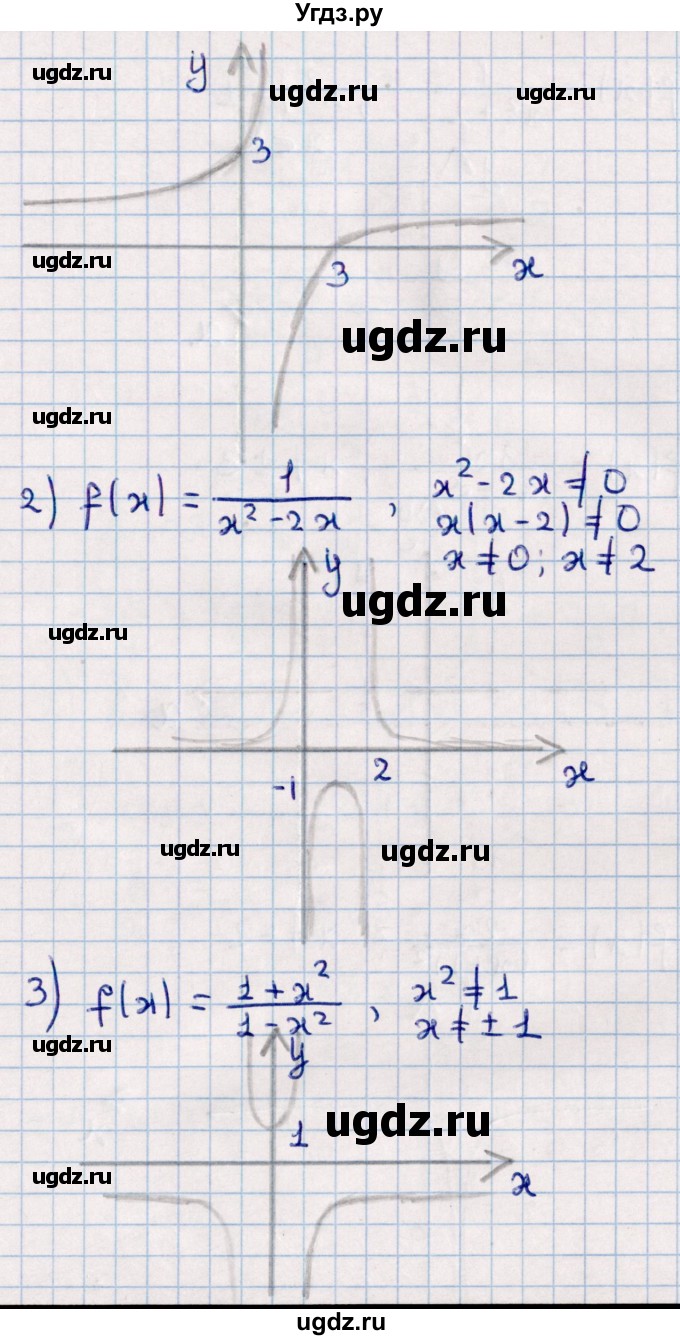 Угдз.ру
ugdz.ru
y
ugdz.ru
ugdz.ru
3
ugdz.ru
3
x
ugdz.ru
ugdz.ru
2) f(x) = 1/(x² - 2x) , x² - 2x ≠ 0
x(x - 2) ≠ 0
x ≠ 0; x ≠ 2
y
ugdz.ru
ugdz.ru
2
x
-1
ugdz.ru
ugdz.ru
3) f(x) = (1 + x²)/(1 - x²) , x² ≠ 1
x ≠ ± 1
ugdz.ru
y
1
ugdz.ru
ugdz.ru
x
ugdz.ru